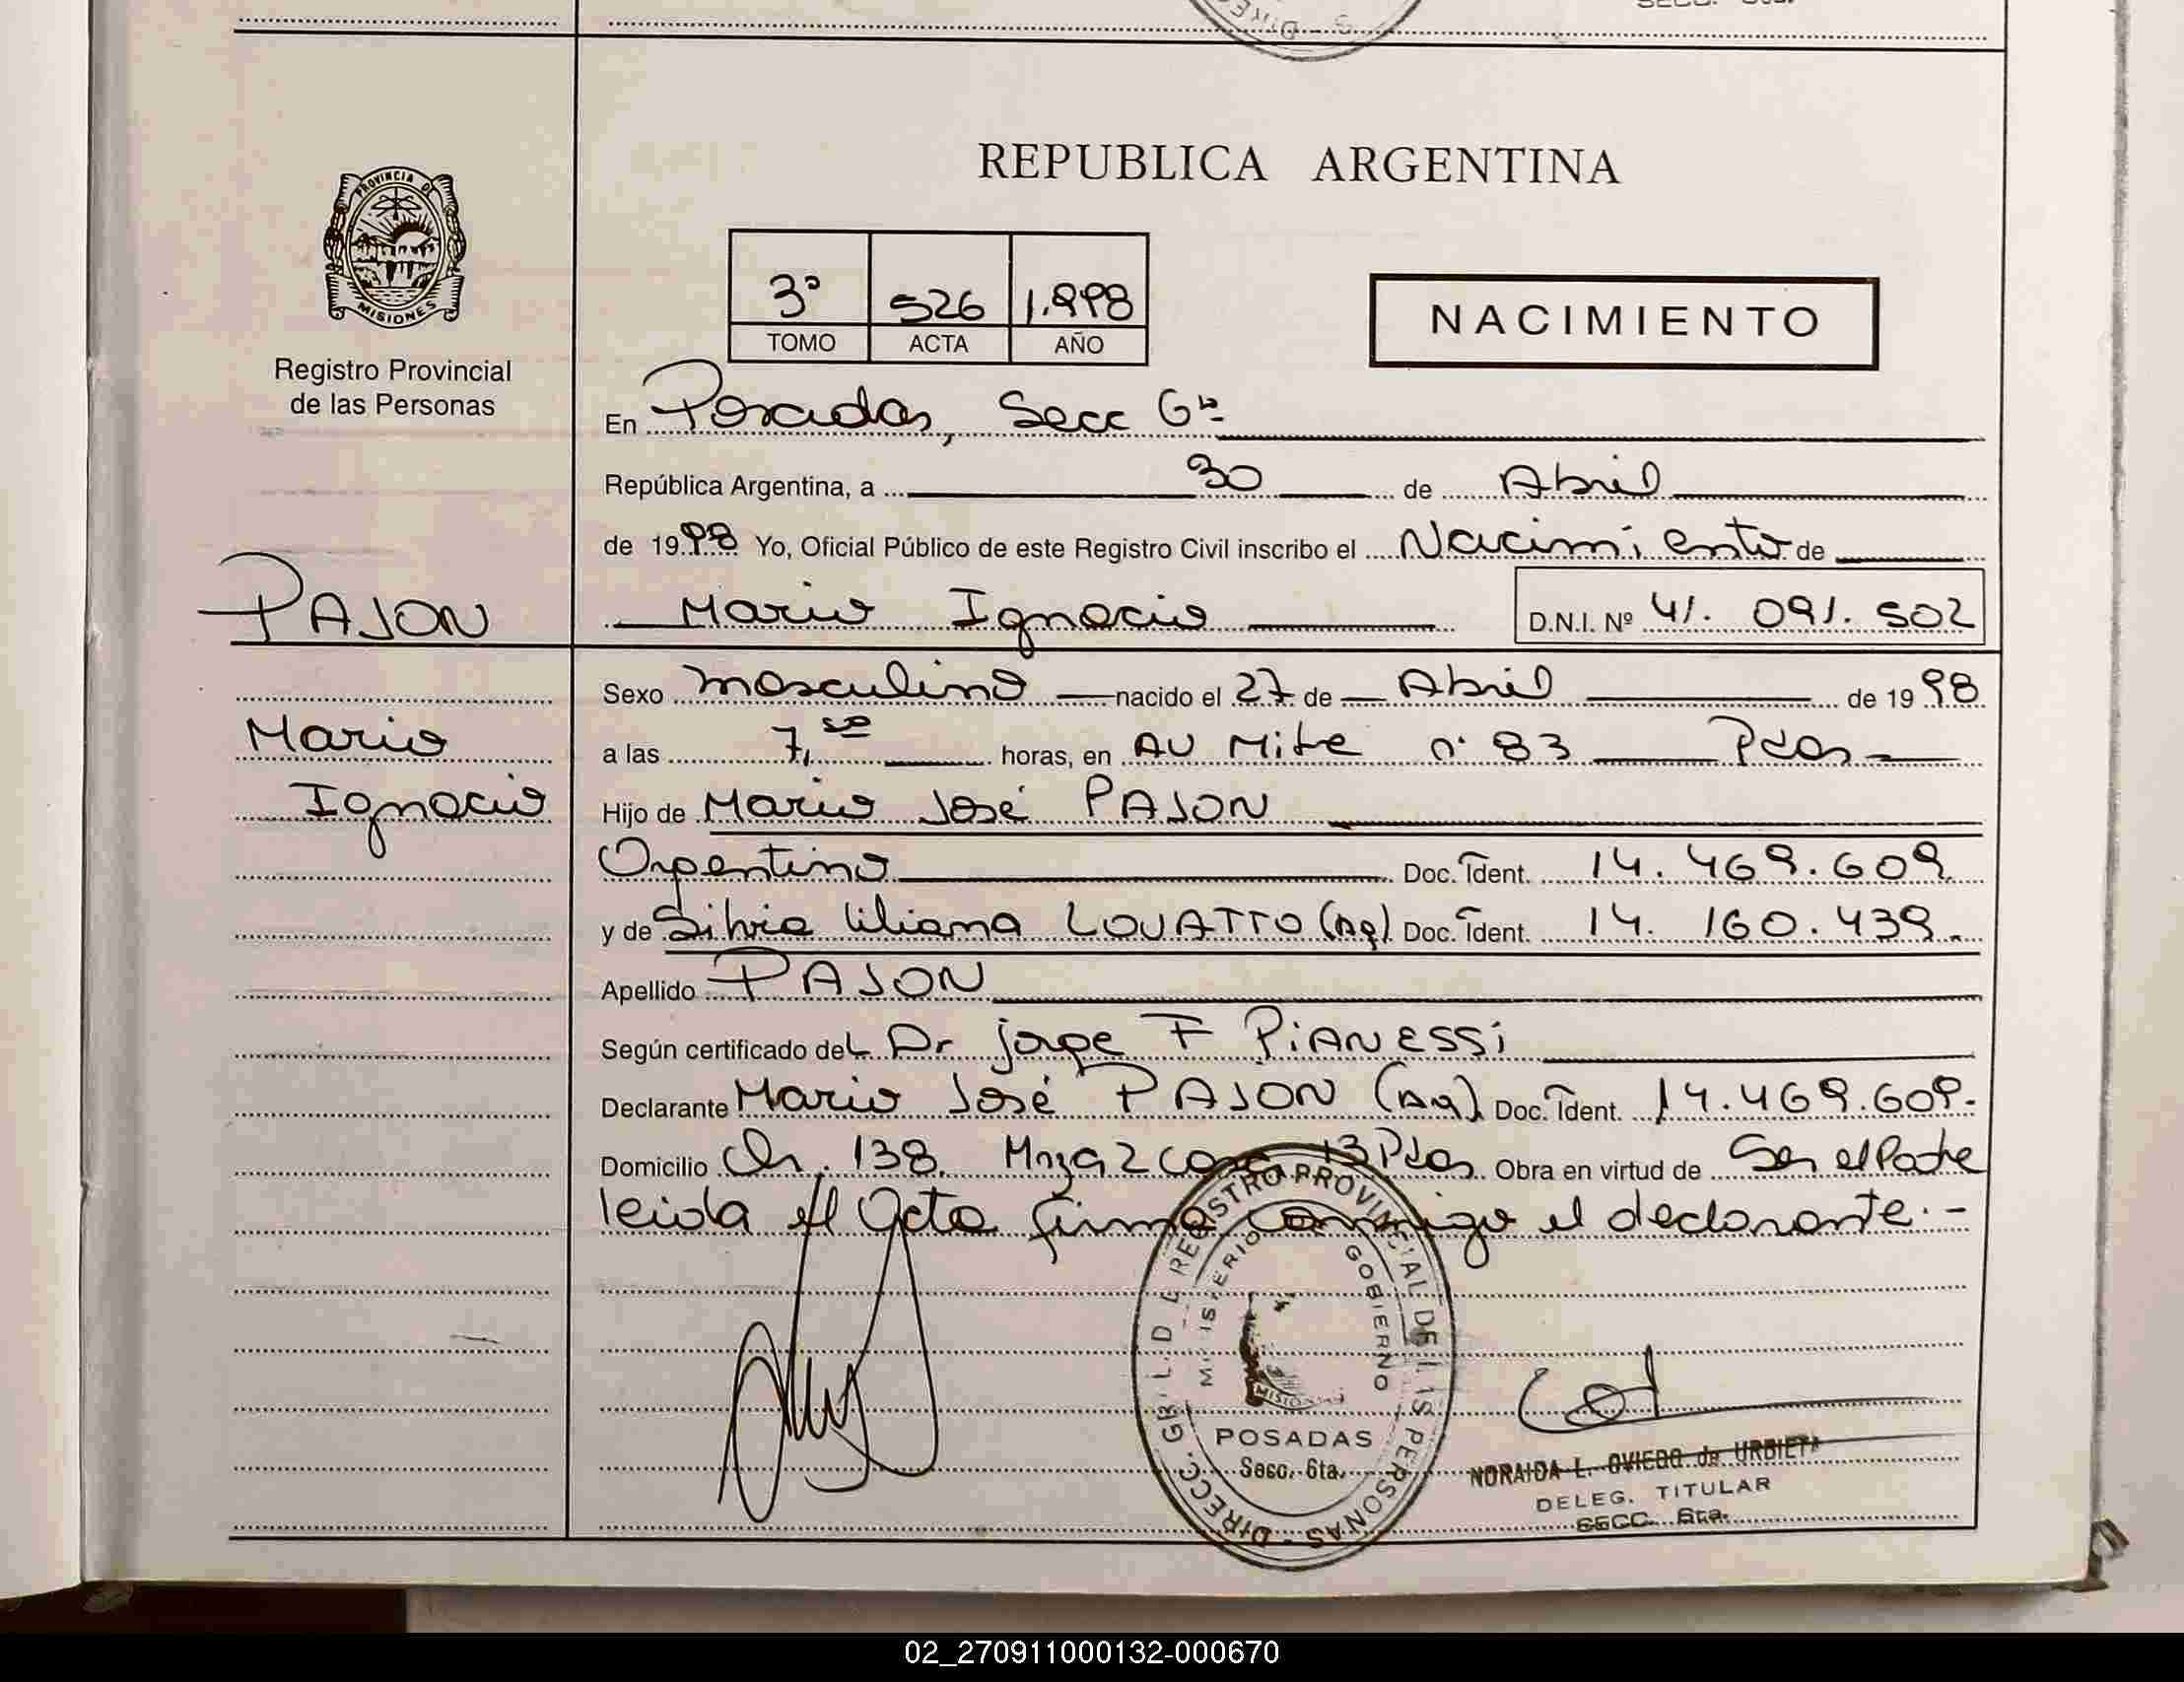 SECC. 6ta.
REPUBLICA ARGENTINA
PROVINCIA DE
MISIONES
3º 526 1.998
TOMO ACTA AÑO
NACIMIENTO
Registro Provincial
de las Personas
En Posadas, Secc 6ta
República Argentina, a 30 de Abril
de 1998 Yo, Oficial Público de este Registro Civil inscribo el Nacimiento de
PAJON
Mario Ignacio D.N.I. Nº 41. 091. 502
Sexo masculino nacido el 27 de Abril de 1998
Mario
a las 7,50 horas, en AU Mitre nº 83 Pdas
Ignacio
Hijo de Mario José PAJON
Argentino Doc. Ident. 14. 469. 609
y de Silvia Liliana LOVATTO (Ag) Doc. Ident. 14. 160. 439.
Apellido PAJON
Según certificado del Dr Jorge F PiANESSi
Declarante Mario José PAJON (Ag) Doc. Ident. 14.469.609.
Domicilio Ch. 138. Mnza 2 casa 13 Pdas Obra en virtud de Ser el Padre
leida el Acta firma conmigo el declarante.-
DIRECC. GRAL. DE REGISTRO PROVINCIAL DE LAS PERSONAS
MINISTERIO GOBIERNO
MISIONES
POSADAS
Secc. 6ta.
NORAIDA L. OVIEDO de URBIETA
DELEG. TITULAR
SECC. 6ta.
02_270911000132-000670